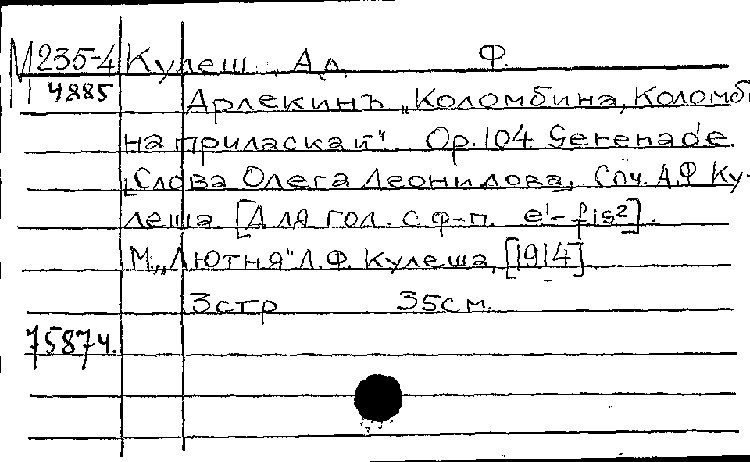 М 235-4 Кулеш Ал. Ф.
4885
Арлекинъ „Коломбина, Коломби
на приласкай" Op. 104 Serenade
„Слова Олега Леонидова, Соч. А.Ф Ку-
леша [Для гол. с ф-п. e¹-fis²].
М. „Лютня" Л.Ф. Кулеша, [1914]
3 стр 35 см.
75874.